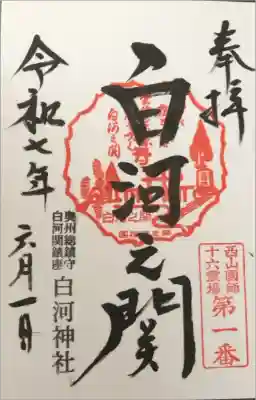 奉拝
白河之関
令和七年
六月一日
奥州総鎮守
白河関鎮座
白河神社
西山国師
十六霊場
第一番
白河之関